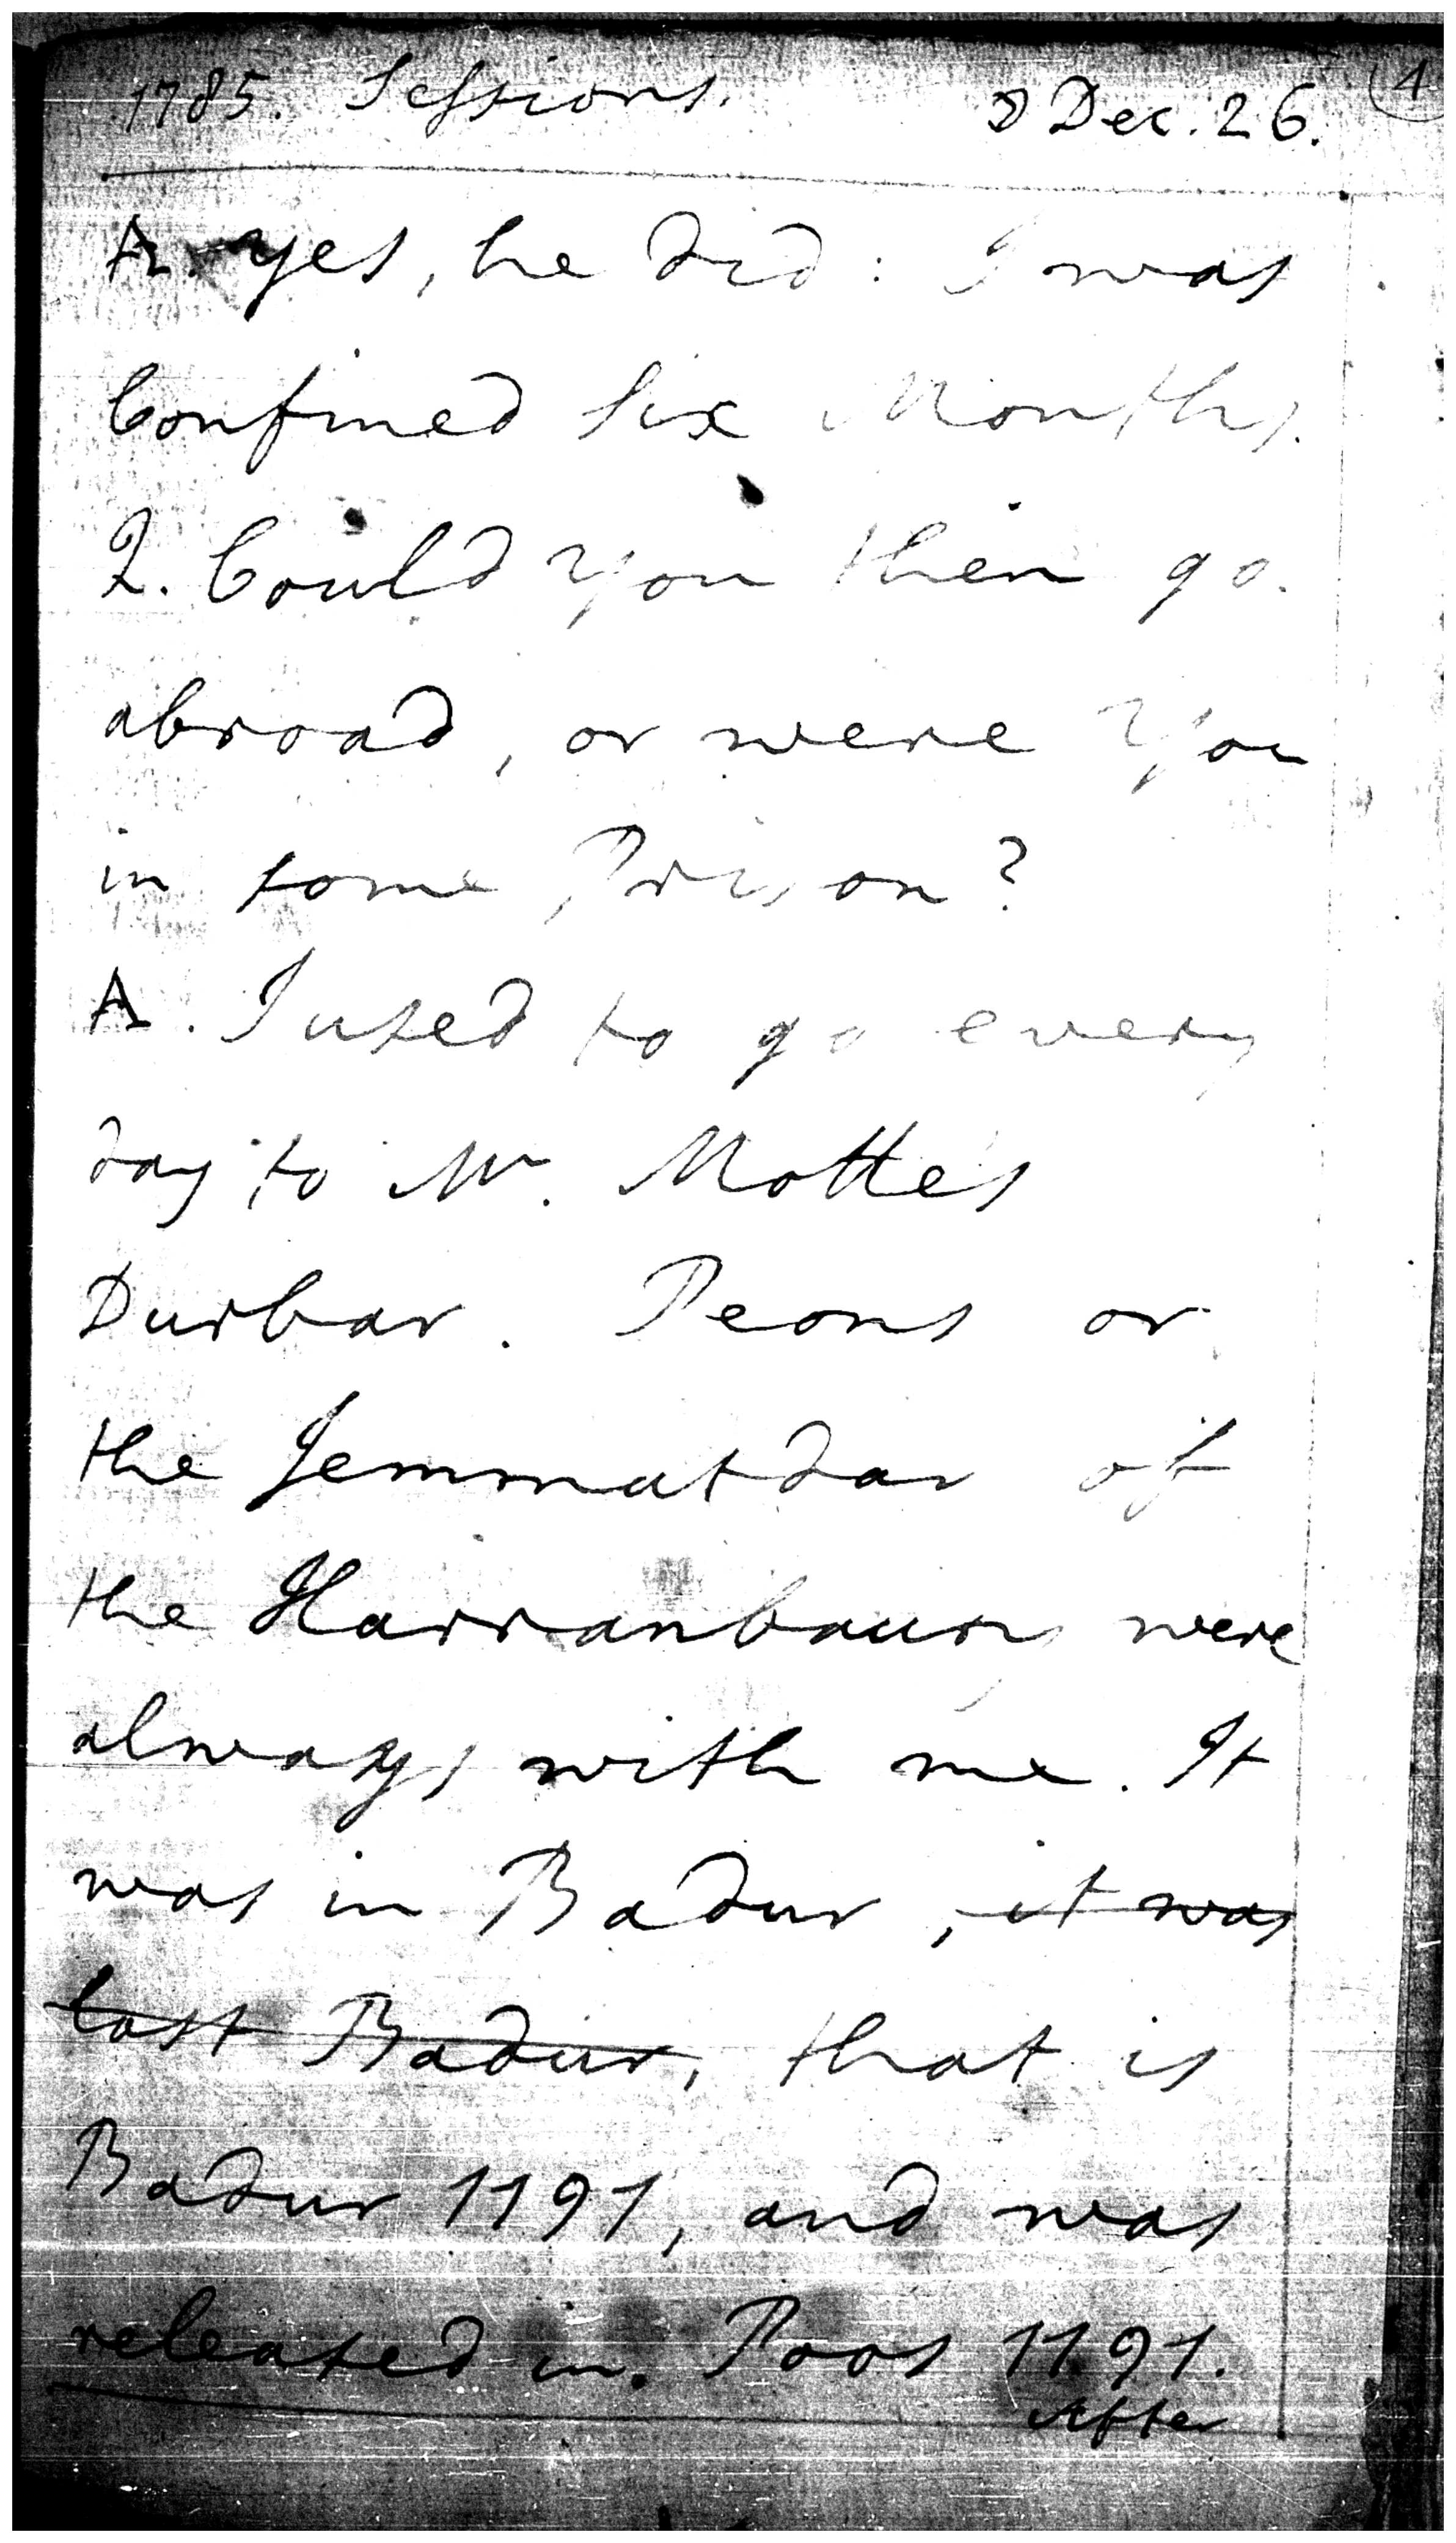 1785. Sessions. ☽ Dec. 26. (4
A. Yes, he did: I was
Confined Six Months.
Q. Could You then go
abroad, or were You
in some Prison?
A. I used to go every
day to Mr. Motte's
Durbar. Peons or
the Jemmatdar of
the Harranbaury were
always with me. It
was in Badur, it was
last Badur, that is
Badur 1191, and was
released in Poos 1191.
After